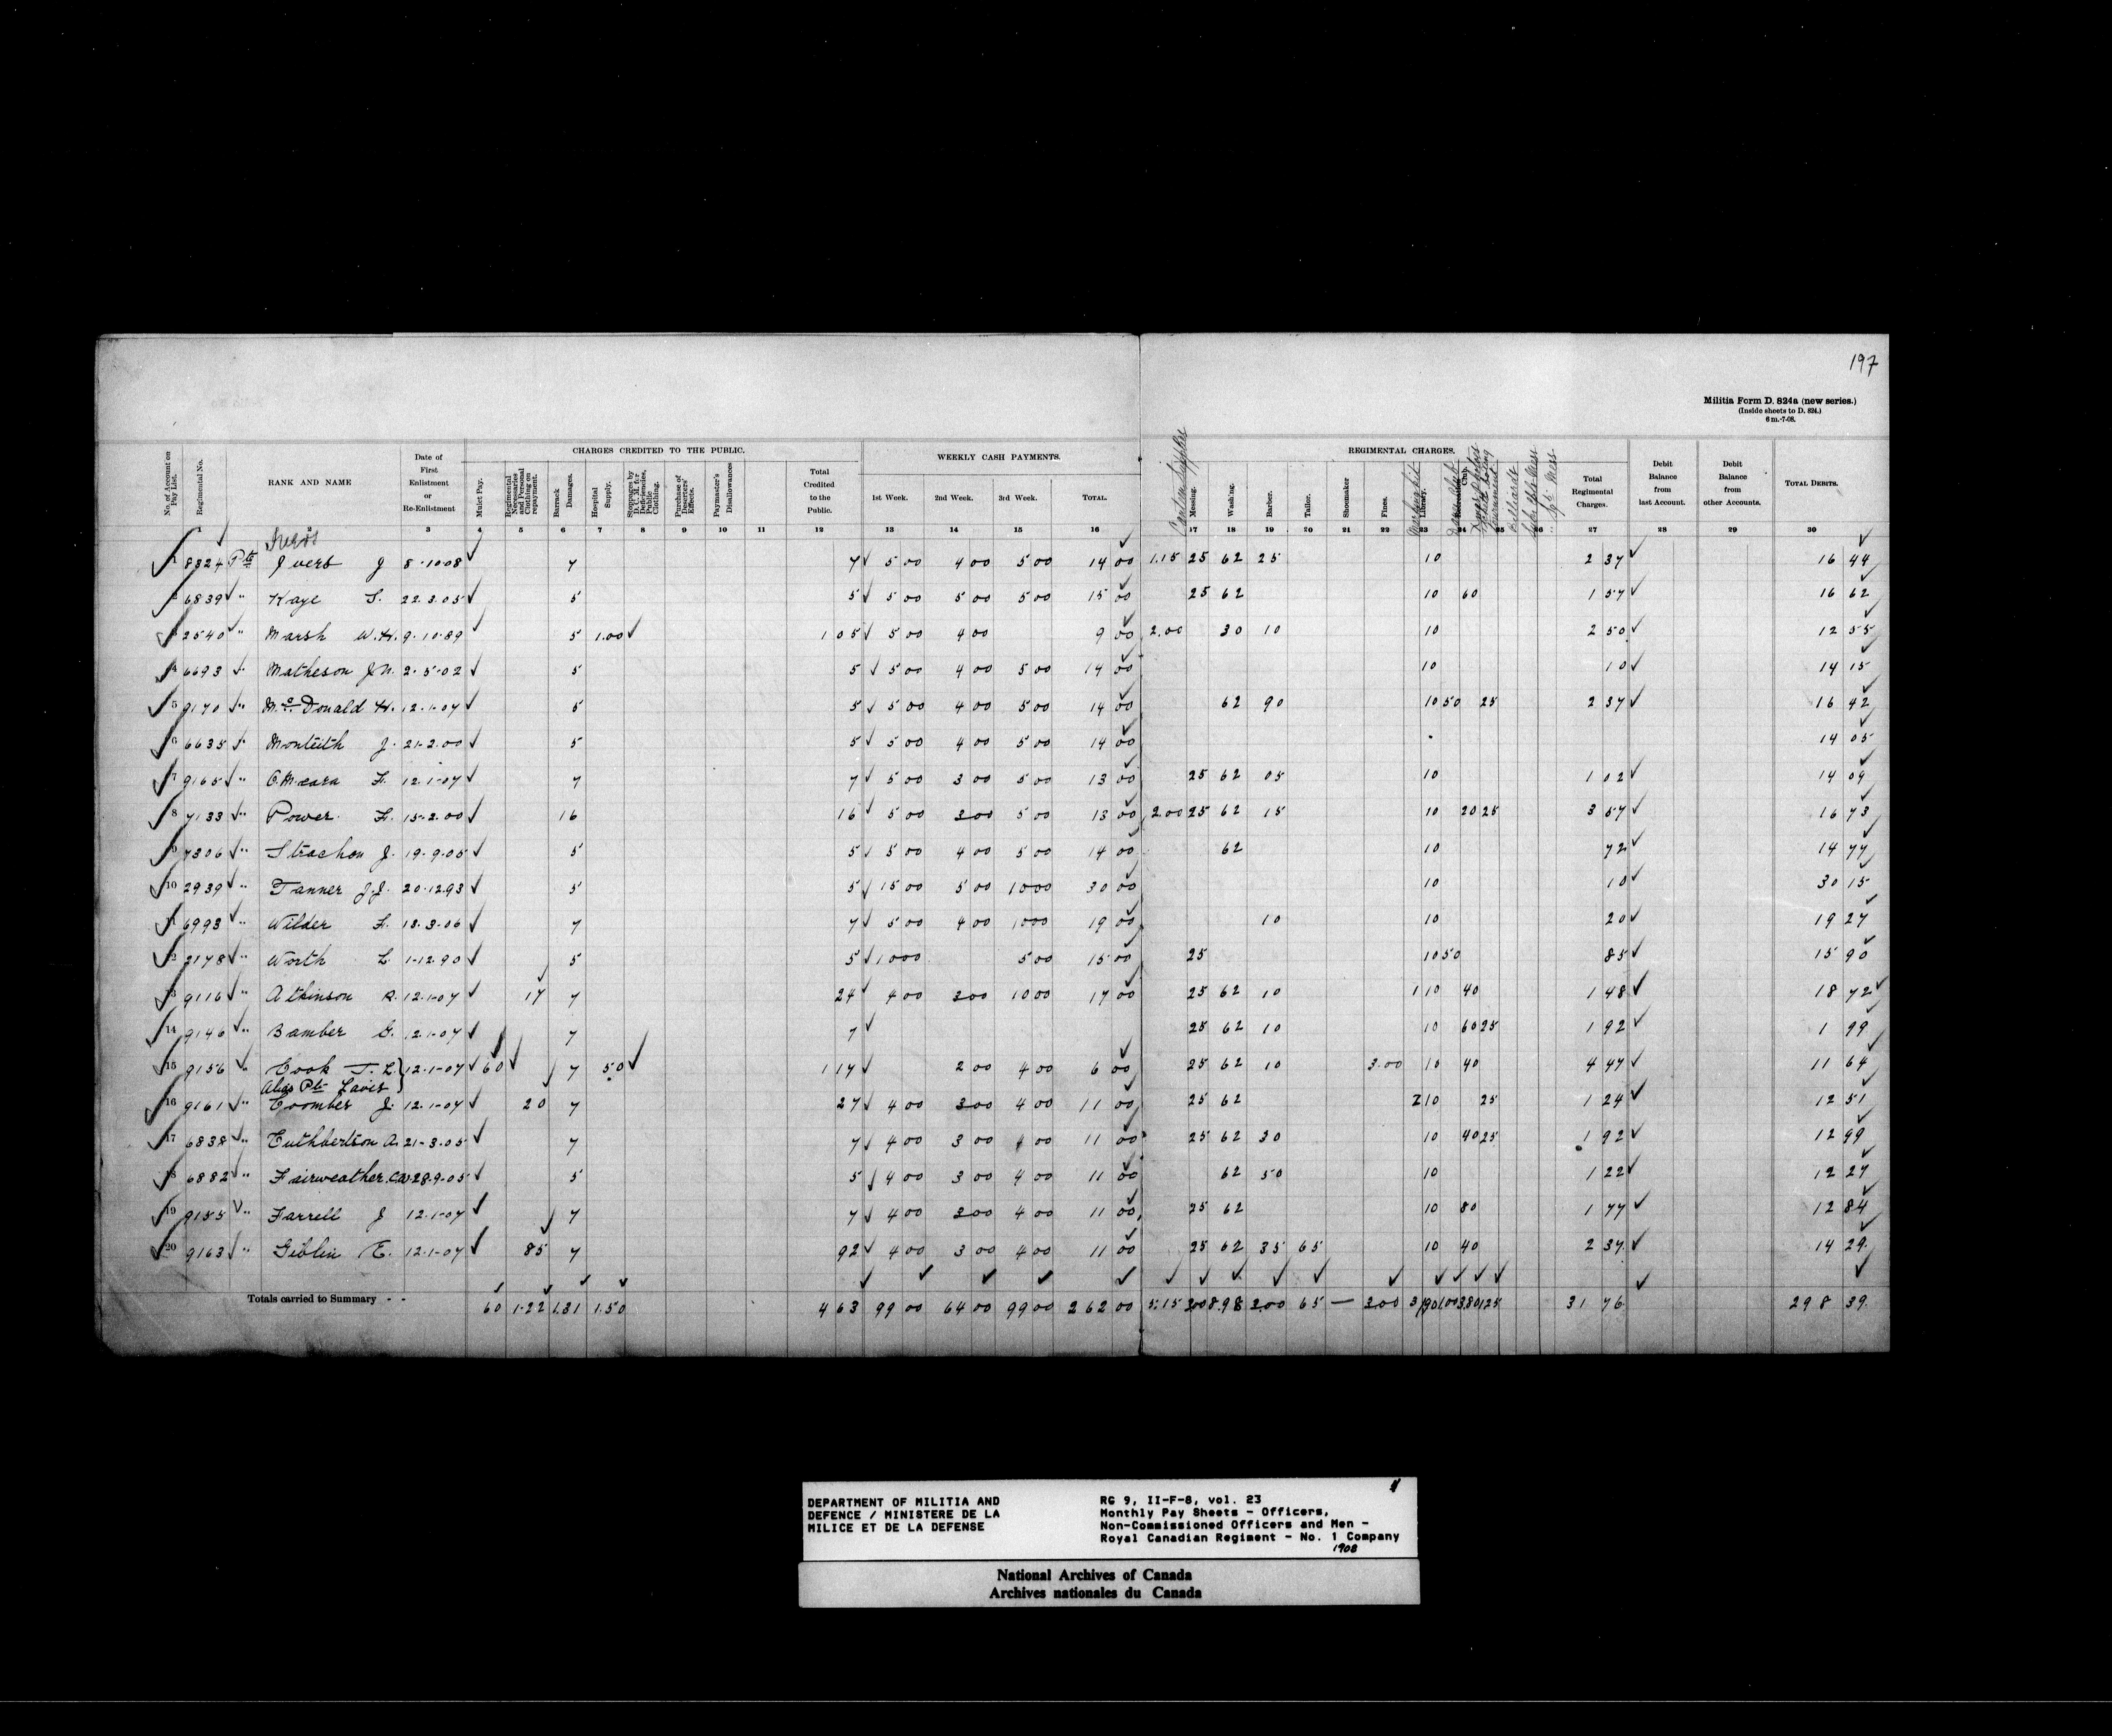 197
Militia Form D. 824a (new series.)
(Inside sheets to D. 824.)
6 m.-7-08.
No. of Account on Pay List. Regimental No. RANK AND NAME Date of First Enlistment or Re-Enlistment CHARGES CREDITED TO THE PUBLIC. WEEKLY CASH PAYMENTS. REGIMENTAL CHARGES. Debit Balance from last Account. Debit Balance from other Accounts. TOTAL DEBITS.
Mulct Pay. Regimental Necessaries and Personal Clothing on repayment. Barrack Damages. Hospital Supply. Stoppages by D.O.C. M. for Deficiencies, Public Clothing. Purchase of Deserters' Effects. Paymaster's Disallowances Total Credited to the Public. 1st Week. 2nd Week. 3rd Week. TOTAL. Messing. Wash'ng. Barber. Tailor. Shoemaker Fines. Library. Recreation Club. Billiards Total Regimental Charges.
1 2 3 4 5 6 7 8 9 10 11 12 13 14 15 16 17 18 19 20 21 22 23 24 25 26 27 28 29 30
1 8324 Pte Iverb J 8.10.08 7 7 5 00 4 00 5 00 14 00 1.15 25 62 25 10 2 37 16 44
2 6839 " Kaye S. 22.3.05 5 5 5 00 5 00 5 00 15 00 25 62 10 60 1 57 16 62
3 2540 " Marsh W.H. 9.10.89 5 1.00 1 05 5 00 4 00 9 00 2.00 30 10 10 2 50 12 55
4 6693 " Matheson J.N. 2.5.02 5 5 5 00 4 00 5 00 14 00 10 10 14 15
5 9170 " McDonald H. 12.1.07 5 5 5 00 4 00 5 00 14 00 62 90 10 50 25 2 37 16 42
6 6635 " Monteith J. 21.2.00 5 5 5 00 4 00 5 00 14 00 14 05
7 9165 " O'Meara F. 12.1.07 7 7 5 00 3 00 5 00 13 00 25 62 05 10 1 02 14 09
8 7133 " Power F. 15.2.00 16 16 5 00 3 00 5 00 13 00 2.00 25 62 15 10 20 25 3 57 16 73
9 7306 " Strachan J. 19.9.05 5 5 5 00 4 00 5 00 14 00 62 10 72 14 77
10 2939 " Tanner J.J. 20.12.93 5 5 15 00 5 00 10 00 30 00 10 10 30 15
11 6993 " Wilder F. 18.3.06 7 7 5 00 4 00 10 00 19 00 10 10 20 19 27
12 3178 " Worth L. 1.12.90 5 5 10 00 5 00 15 00 25 10 50 85 15 90
13 9116 " Atkinson R. 12.1.07 17 7 24 4 00 3 00 10 00 17 00 25 62 10 1 10 40 1 48 18 72
14 9146 " Bamber G. 12.1.07 7 7 25 62 10 10 60 25 1 92 1 99
15 9156 " Cook T. L. 12.1.07 60 7 50 1 17 2 00 4 00 6 00 25 62 10 3.00 10 40 4 47 11 64
Alias Pte Laves
16 9161 " Coomber J. 12.1.07 20 7 27 4 00 3 00 4 00 11 00 25 62 2 10 25 1 24 12 51
17 6838 " Cuthbertson A. 21.3.05 7 7 4 00 3 00 4 00 11 00 25 62 30 10 40 25 1 92 12 99
18 6882 " Fairweather C.W. 28.9.05 5 5 4 00 3 00 4 00 11 00 62 50 10 1 22 12 27
19 9155 " Farrell J 12.1.07 7 7 4 00 3 00 4 00 11 00 25 62 10 80 1 77 12 84
20 9163 " Giblin E. 12.1.07 85 7 92 4 00 3 00 4 00 11 00 25 62 35 65 10 40 2 37 14 29
Totals carried to Summary - - 60 1.22 1.31 1.50 4 63 99 00 64 00 99 00 262 00 5.15 3.00 8.98 3.00 65 — 3.00 3 1.90 1.00 3.80 1.25 31 76 298 39
DEPARTMENT OF MILITIA AND
DEFENCE / MINISTERE DE LA
MILICE ET DE LA DEFENSE
RG 9, II-F-8, vol. 23
Monthly Pay Sheets - Officers,
Non-Commissioned Officers and Men -
Royal Canadian Regiment - No. 1 Company
1908
National Archives of Canada
Archives nationales du Canada